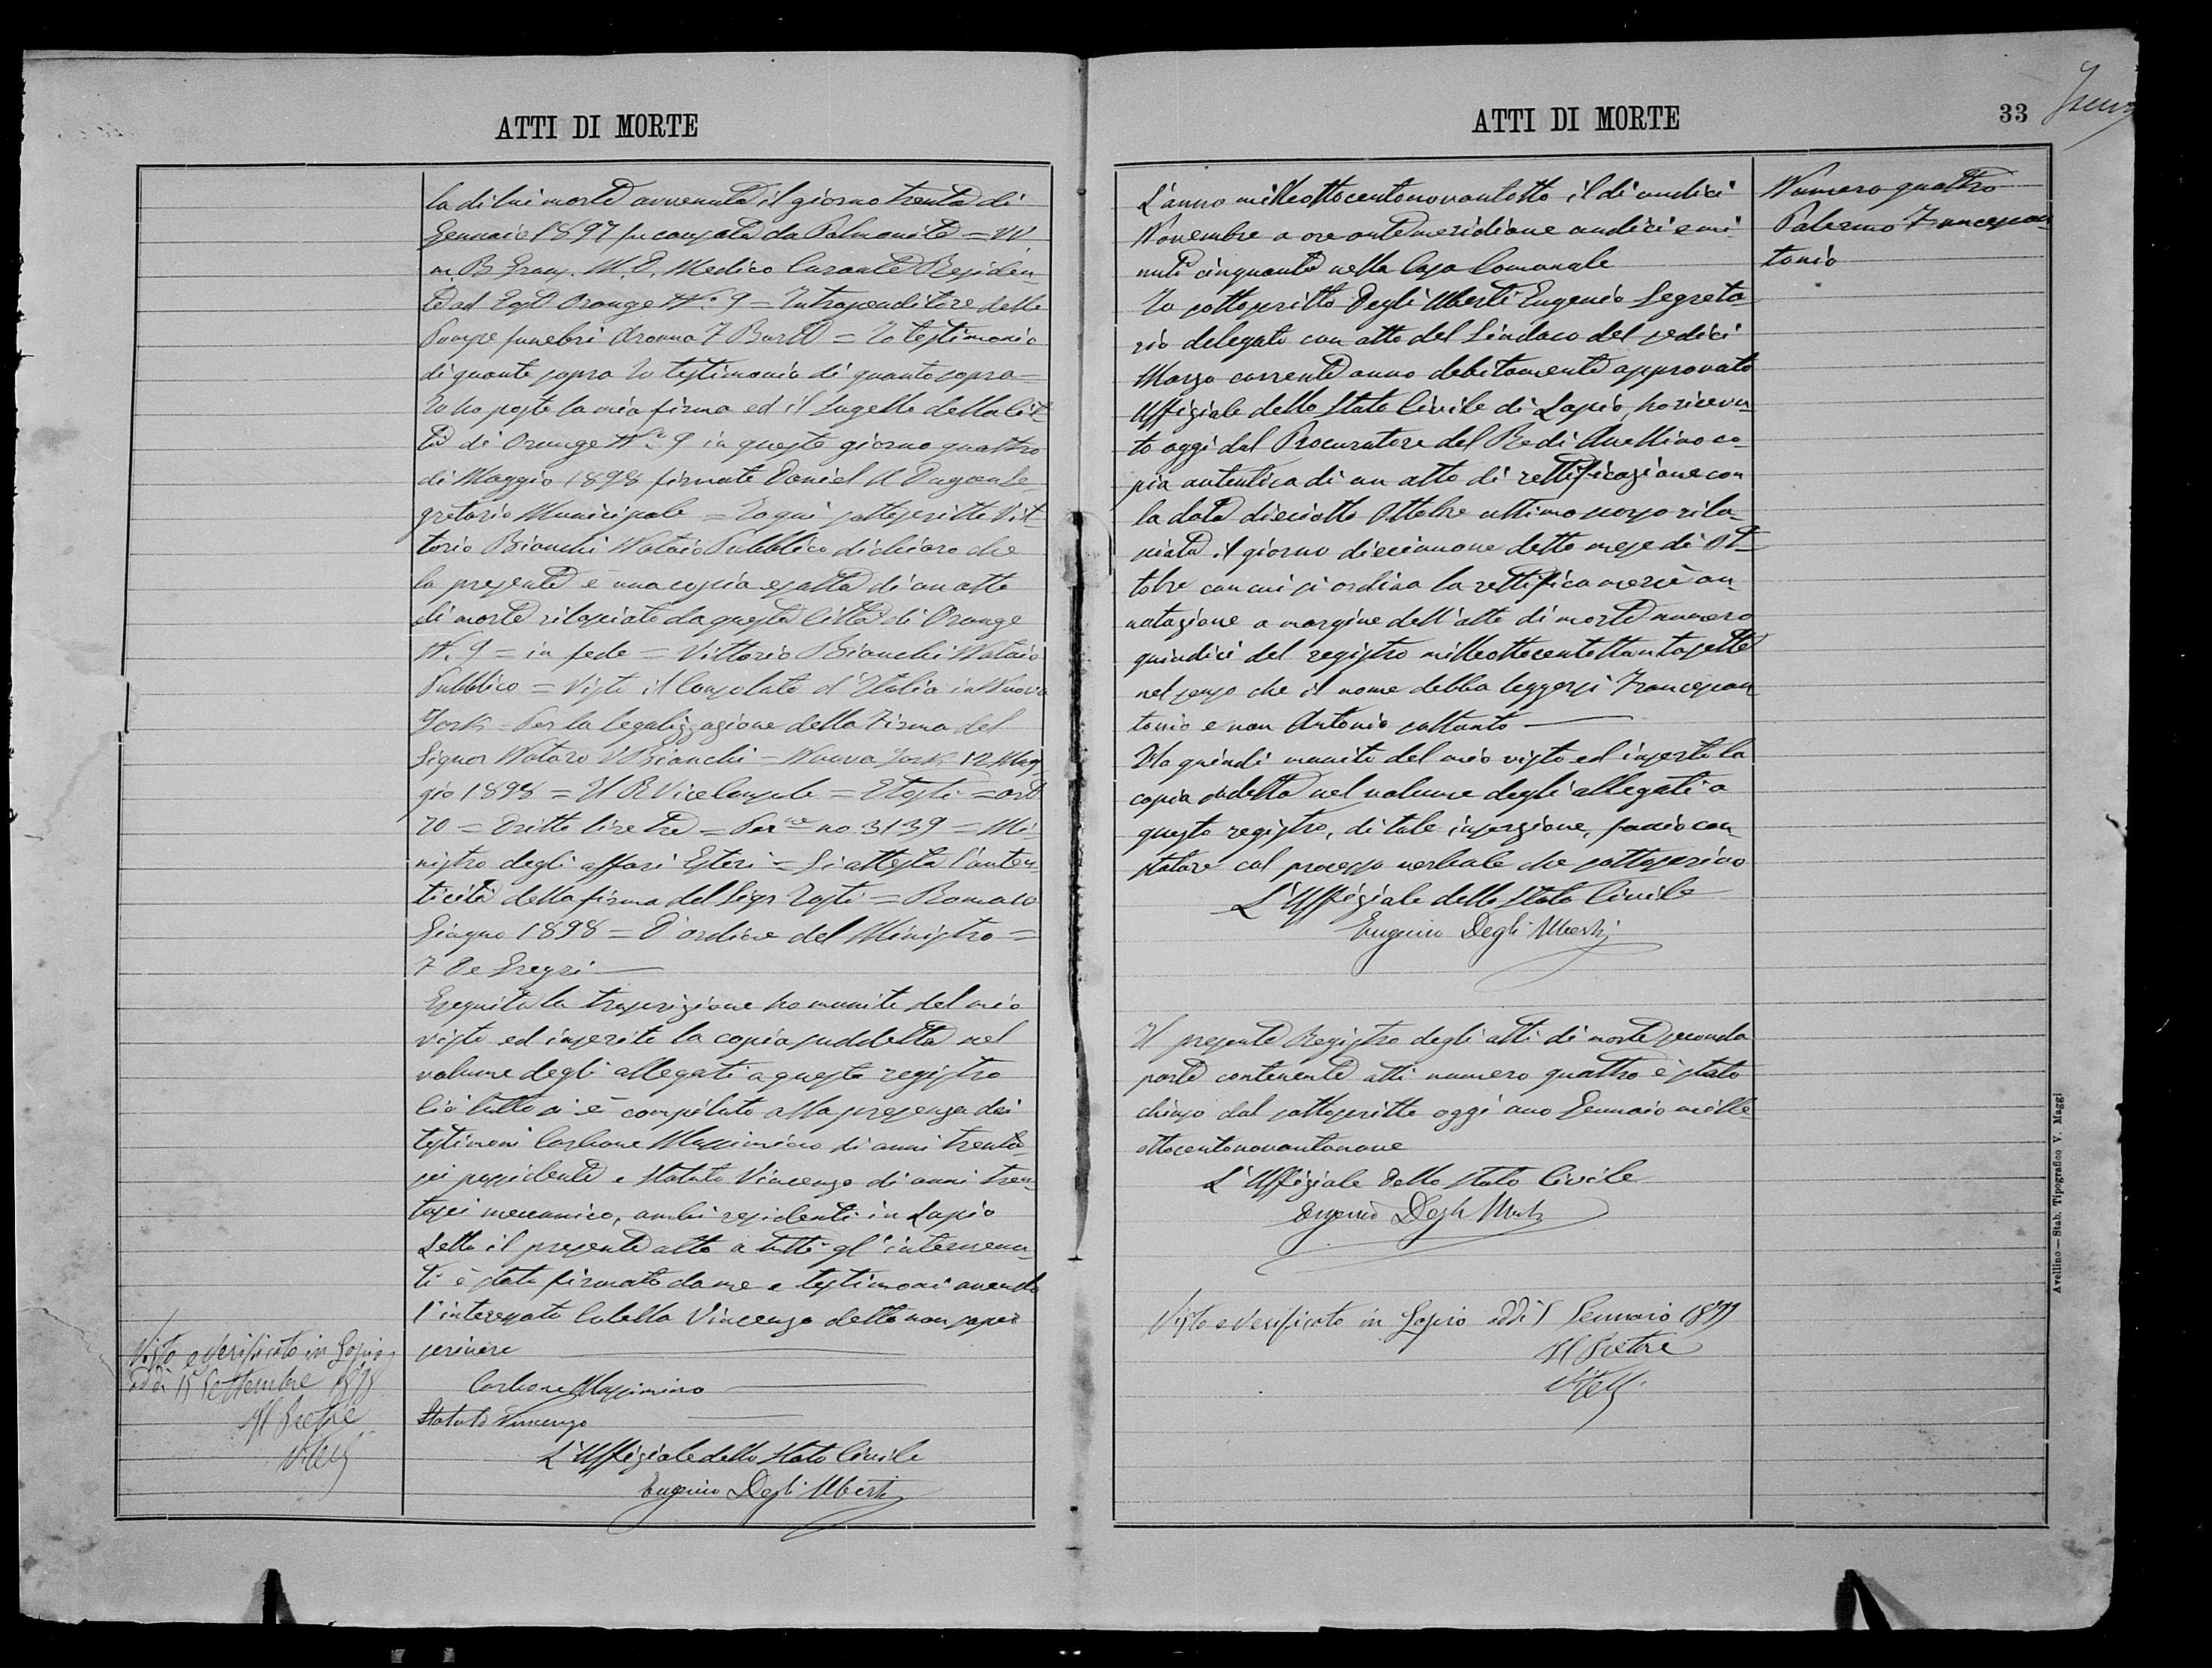 ATTI DI MORTE
la di lui morte avvenuta il giorno trenta di
Gennaio 1897 fu causata da Polmonite = W
m B Gray. M. D. Medico Curante Residen
te ad East Orange N. 9 = Intraprenditore delle
Pompe funebri = In testimonio
di quanto sopra In testimonio di quanto sopra =
Io ho posto la mia firma ed il Sugello della Cit
tà di Orange N. 9 in questo giorno quattro
di Maggio 1898 firmato Daniel A Dugan Se
gretario Municipale = Io qui sottoscritto Vit
torio Bianchi Notaio Pubblico dichiaro che
la presente è una copia esatta di un atto
di morte rilasciato da questa Città di Orange
N. 9 = in fede = Vittorio Bianchi Notaio
Pubblico = Visto il Consolato d'Italia in Nuova
York = Per la legalizzazione della Firma del
Signor Notaro V Bianchi = Nuova York 12 Mag
gio 1898 = Il R Vice Console = = art
70 = Dritto lire tre = no 3139 = Mi
nistro degli affari Esteri = Si attesta l'auten
ticità della firma del Sigr = Roma 10
Giugno 1898 = D'ordine del Ministro =
7 De Gregri
Eseguita la trascrizione ho munito del mio
visto ed inserito la copia suddetta nel
volume degli allegati a questo registro
Ciò tutto si è compiuto alla presenza dei
testimoni Carbone Massimino di anni trenta
sei possidente e Statuto Vincenzo di anni tren
tasei meccanico, ambi residenti in Lapio
Letto il presente atto a tutti gl'intervenu
ti è stato firmato da me e testimoni avendo
l'interessato Colella Vincenzo detto non saper
scrivere
Carbone Massimino
Statuto Vincenzo
L'Uffiziale dello Stato Civile
Eugenio Degli Uberti
Visto e verificato in Lapio
addì 15 Settembre 1898
Il Pretore
ATTI DI MORTE
33
L'anno milleottocentonovantotto il dì undici
Novembre a ore antemeridiane undici e mi
nuti cinquanta nella Casa Comunale
Io sottoscritto Degli Uberti Eugenio Segreta
rio delegato con atto del Sindaco del sedici
Marzo corrente anno debitamente approvato
Uffiziale dello Stato Civile di Lapio, ho ricevu
to oggi dal Procuratore del Re di Avellino co
pia autentica di un atto di rettificazione con
la data dieciotto Ottobre ultimo scorso rila
sciata il giorno diecianove detto mese di Ot
tobre con cui si ordina la rettifica mercè an
notazione a margine dell'atto di morte numero
quindici del registro milleottocentottantasette
nel senso che il nome debba leggersi Francescan
tonio e non Antonio soltanto
Ho quindi munito del mio visto ed inserto la
copia sudetta nel volume degli allegati a
questo registro, di tale inserzione, faccio con
statare col processo verbale che sottoscrivo
L'Uffiziale dello Stato Civile
Eugenio Degli Uberti
Il presente Registro degli atti di morte seconda
parte contenente atti numero quattro è stato
chiuso dal sottoscritto oggi uno Gennaio mille
ottocentonovantanove
L'Uffiziale dello Stato Civile
Eugenio Degli Uberti
Visto e verificato in Lapio addì Gennaio 1899
Il Pretore
Numero quattro
Palermo Francescan
tonio
Avellino — Stab. Tipografico V. Maggi